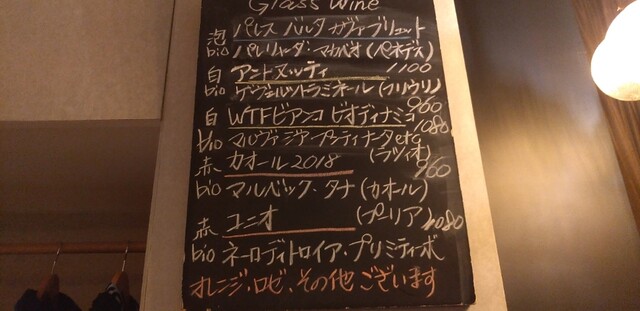 Glass Wine
泡 パレス バルタ カヴァ ブリュット
bio パレリャーダ・マカベオ(ペネデス)
白 アントヌッティ 1100
bio ゲヴェルツトラミネール(フリウリ)
白 WTFビアンコ ビオディナミコ 960
bio マルヴァジア・プンティナータetc 1080
赤 カオール2018 (ラツィオ)
bio マルベック・タナ(カオール) 960
赤 ユニオ (プーリア) 1080
bio ネーロディトロイア・プリミティーボ
オレンジ・ロゼ、その他 ございます